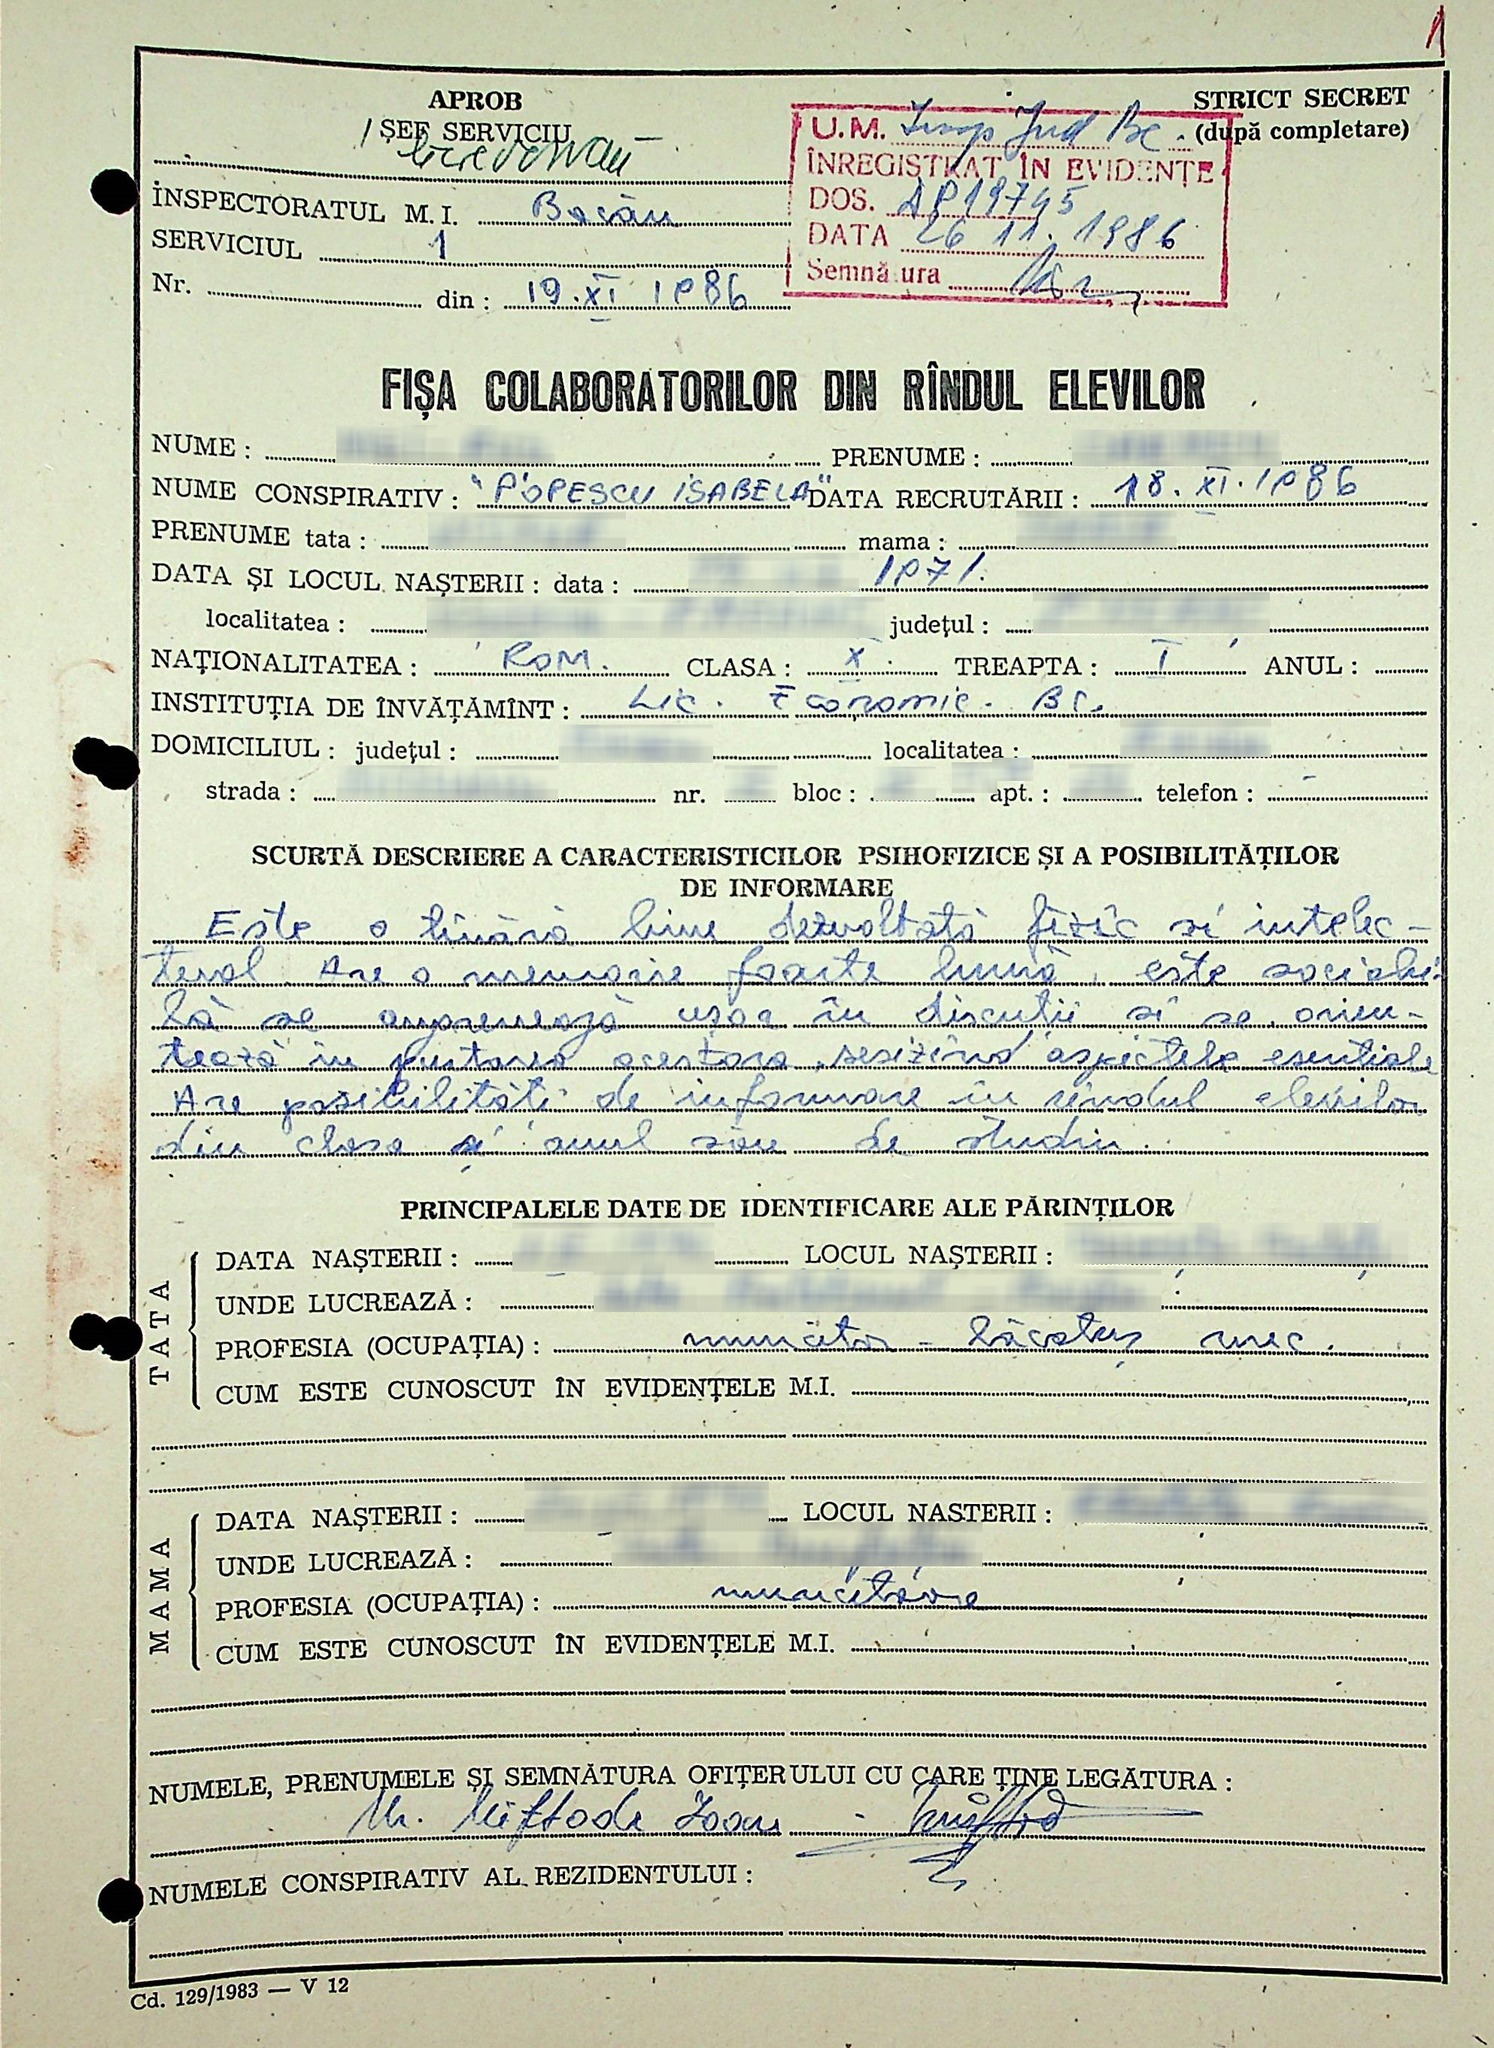 1
APROB
STRICT SECRET
ȘEF SERVICIU
(după completare)
U.M. Insp Jud Bc.
ÎNREGISTRAT ÎN EVIDENȚE
INSPECTORATUL M.I. Bacău
DOS. 19745
SERVICIUL 1
DATA 26 11. 1986
Semnătura
Nr. din : 19.XI 1986
FIȘA COLABORATORILOR DIN RÎNDUL ELEVILOR
NUME : PRENUME :
NUME CONSPIRATIV : "POPESCU ISABELA" DATA RECRUTĂRII : 18.XI.1986
PRENUME tata : mama :
DATA ȘI LOCUL NAȘTERII : data : 1971.
localitatea : județul :
NAȚIONALITATEA : ROM. CLASA : X TREAPTA : I ANUL :
INSTITUȚIA DE ÎNVĂȚĂMÎNT : Lic. Economic. BC.
DOMICILIUL : județul : localitatea :
strada : nr. bloc : apt. : telefon :
SCURTĂ DESCRIERE A CARACTERISTICILOR PSIHOFIZICE ȘI A POSIBILITĂȚILOR
DE INFORMARE
Este o tînără bine dezvoltată fizic și intelec-
tual. Are o memorie foarte bună, este sociabi-
lă se angrenează ușor în discuții și se orien-
tează în purtarea acestora, sesizînd aspectele esențiale
Are posibilități de informare în rîndul elevilor
din clasa și anul său de studiu.
PRINCIPALELE DATE DE IDENTIFICARE ALE PĂRINȚILOR
TATA
DATA NAȘTERII : LOCUL NAȘTERII :
UNDE LUCREAZĂ :
PROFESIA (OCUPAȚIA) : muncitor - lăcătuș mec.
CUM ESTE CUNOSCUT ÎN EVIDENȚELE M.I.
MAMA
DATA NAȘTERII : LOCUL NASTERII :
UNDE LUCREAZĂ :
PROFESIA (OCUPAȚIA) : muncitoare
CUM ESTE CUNOSCUT ÎN EVIDENȚELE M.I.
NUMELE, PRENUMELE ȘI SEMNĂTURA OFIȚERULUI CU CARE ȚINE LEGĂTURA :
Mr. Miftode Ioan
NUMELE CONSPIRATIV AL REZIDENTULUI :
Cd. 129/1983 — V 12